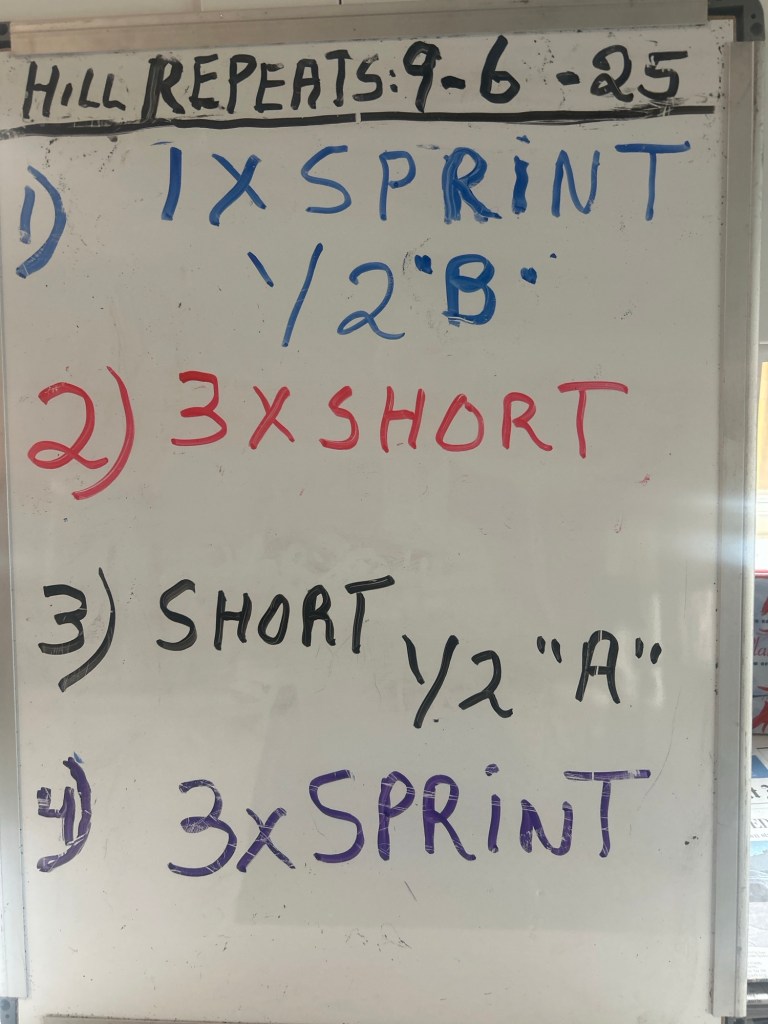 HILL REPEATS: 9-6-25
1) 1X SPRINT
1/2 "B"
2) 3X SHORT
3) SHORT
1/2 "A"
4) 3X SPRINT